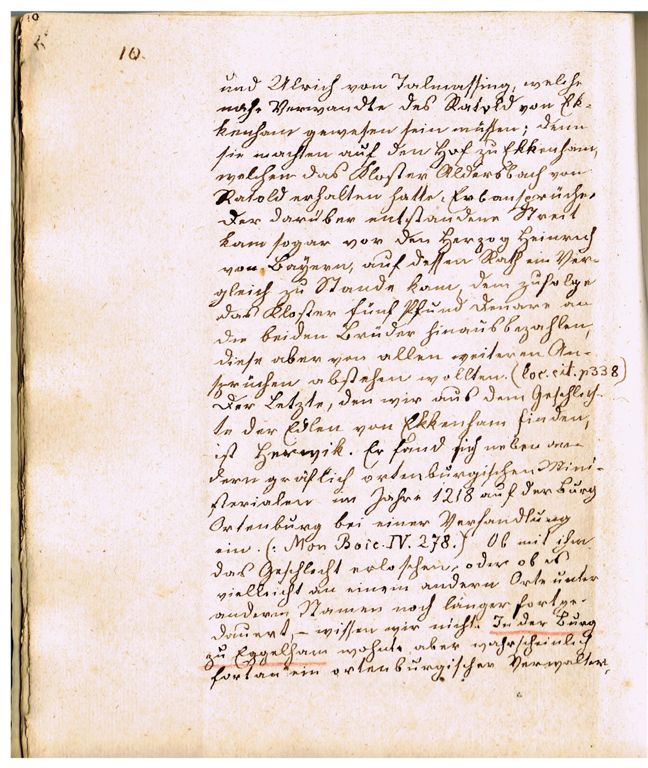 10.
und Ulrich von Talmassing, welche
nahe Verwandte des Ratold von Ek-
kenham gewesen sein müssen; denn
sie machten auf den Hof zu Ekkenham,
welchen das Kloster Aldersbach von
Ratold erhalten hatte, Erbansprüche.
Der darüber entstandene Streit
kam sogar vor den Herzog Heinrich
von Bayern, auf dessen Rath ein Ver-
gleich zu Stande kam, dem zufolge
das Kloster fünf Pfund Denare an
die beiden Brüder hinausbezahlen,
diese aber von allen weiteren An-
sprüchen abstehen wollten. (loc. cit. p 338)
Der Letzte, den wir aus dem Geschlech-
te der Edlen von Ekkenham finden,
ist Herwik. Er fand sich neben an-
dern gräflich ortenburgischen Mini-
sterialen im Jahre 1218 auf der Burg
Ortenburg bei einer Verhandlung
ein. (: Mon Boic. IV. 278.) Ob mit ihm
das Geschlecht erloschen, oder ob es
vielleicht an einem andern Orte unter
anderm Namen noch länger fortge-
dauert, – wissen wir nicht. In der Burg
zu Eggelham wohnte aber wahrscheinlich
fortan ein ortenburgischer Verwalter,